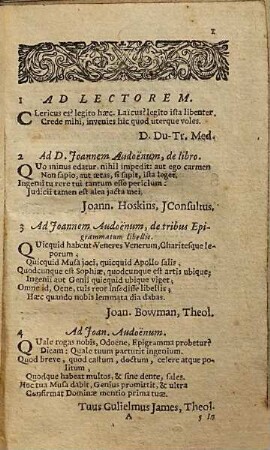 1
1 AD LECTOREM.
Clericus es? legito hæc. Laicus? legito ista libenter.
Crede mihi, invenies hic quod uterque voles.
D. Du-Tr. Med.
2 Ad D. Joannem Audoënum, de libro.
Quo minus edatur. nihil impedit: aut ego carmen
Non sapio, aut ætas, si sapit, ista loget.
Ingenii tu rere tui tantum esse periclum:
Judicii tamen est alea jacta mei,
Joann. Hoskins, JConsultus.
3 Ad Joannem Audoënum, de tribus Epi-
grammatum libellis.
Quicquid habent Veneres Venerum, Charitesque le-
porum;
Quicquid Musa joci, quicquid Apollo salis.
Quodcunque est Sophiæ, quodcunque est artis ubique;
Ingenii aut Genii quicquid ubique viget;
Omne id, Oene, tuis reor insedisse libellis;
Hæc quando nobis lemmata dia dabas.
Joan. Bowman, Theol.
4 Ad Joan. Audoënum.
Quale rogas nobis, Odoëne, Epigramma probetur?
Dicam: Quale tuum parturit ingenium.
Quod breve, quod castum, doctum, celere atque po-
litum;
Quodque habeat multos, & sine dente, sales.
Hoc tua Musa dabit, Genius promittit, & ultra
Confirmat Dominæ mentio prima tuæ.
Tuus Gulielmus James, Theol.
A 5 In